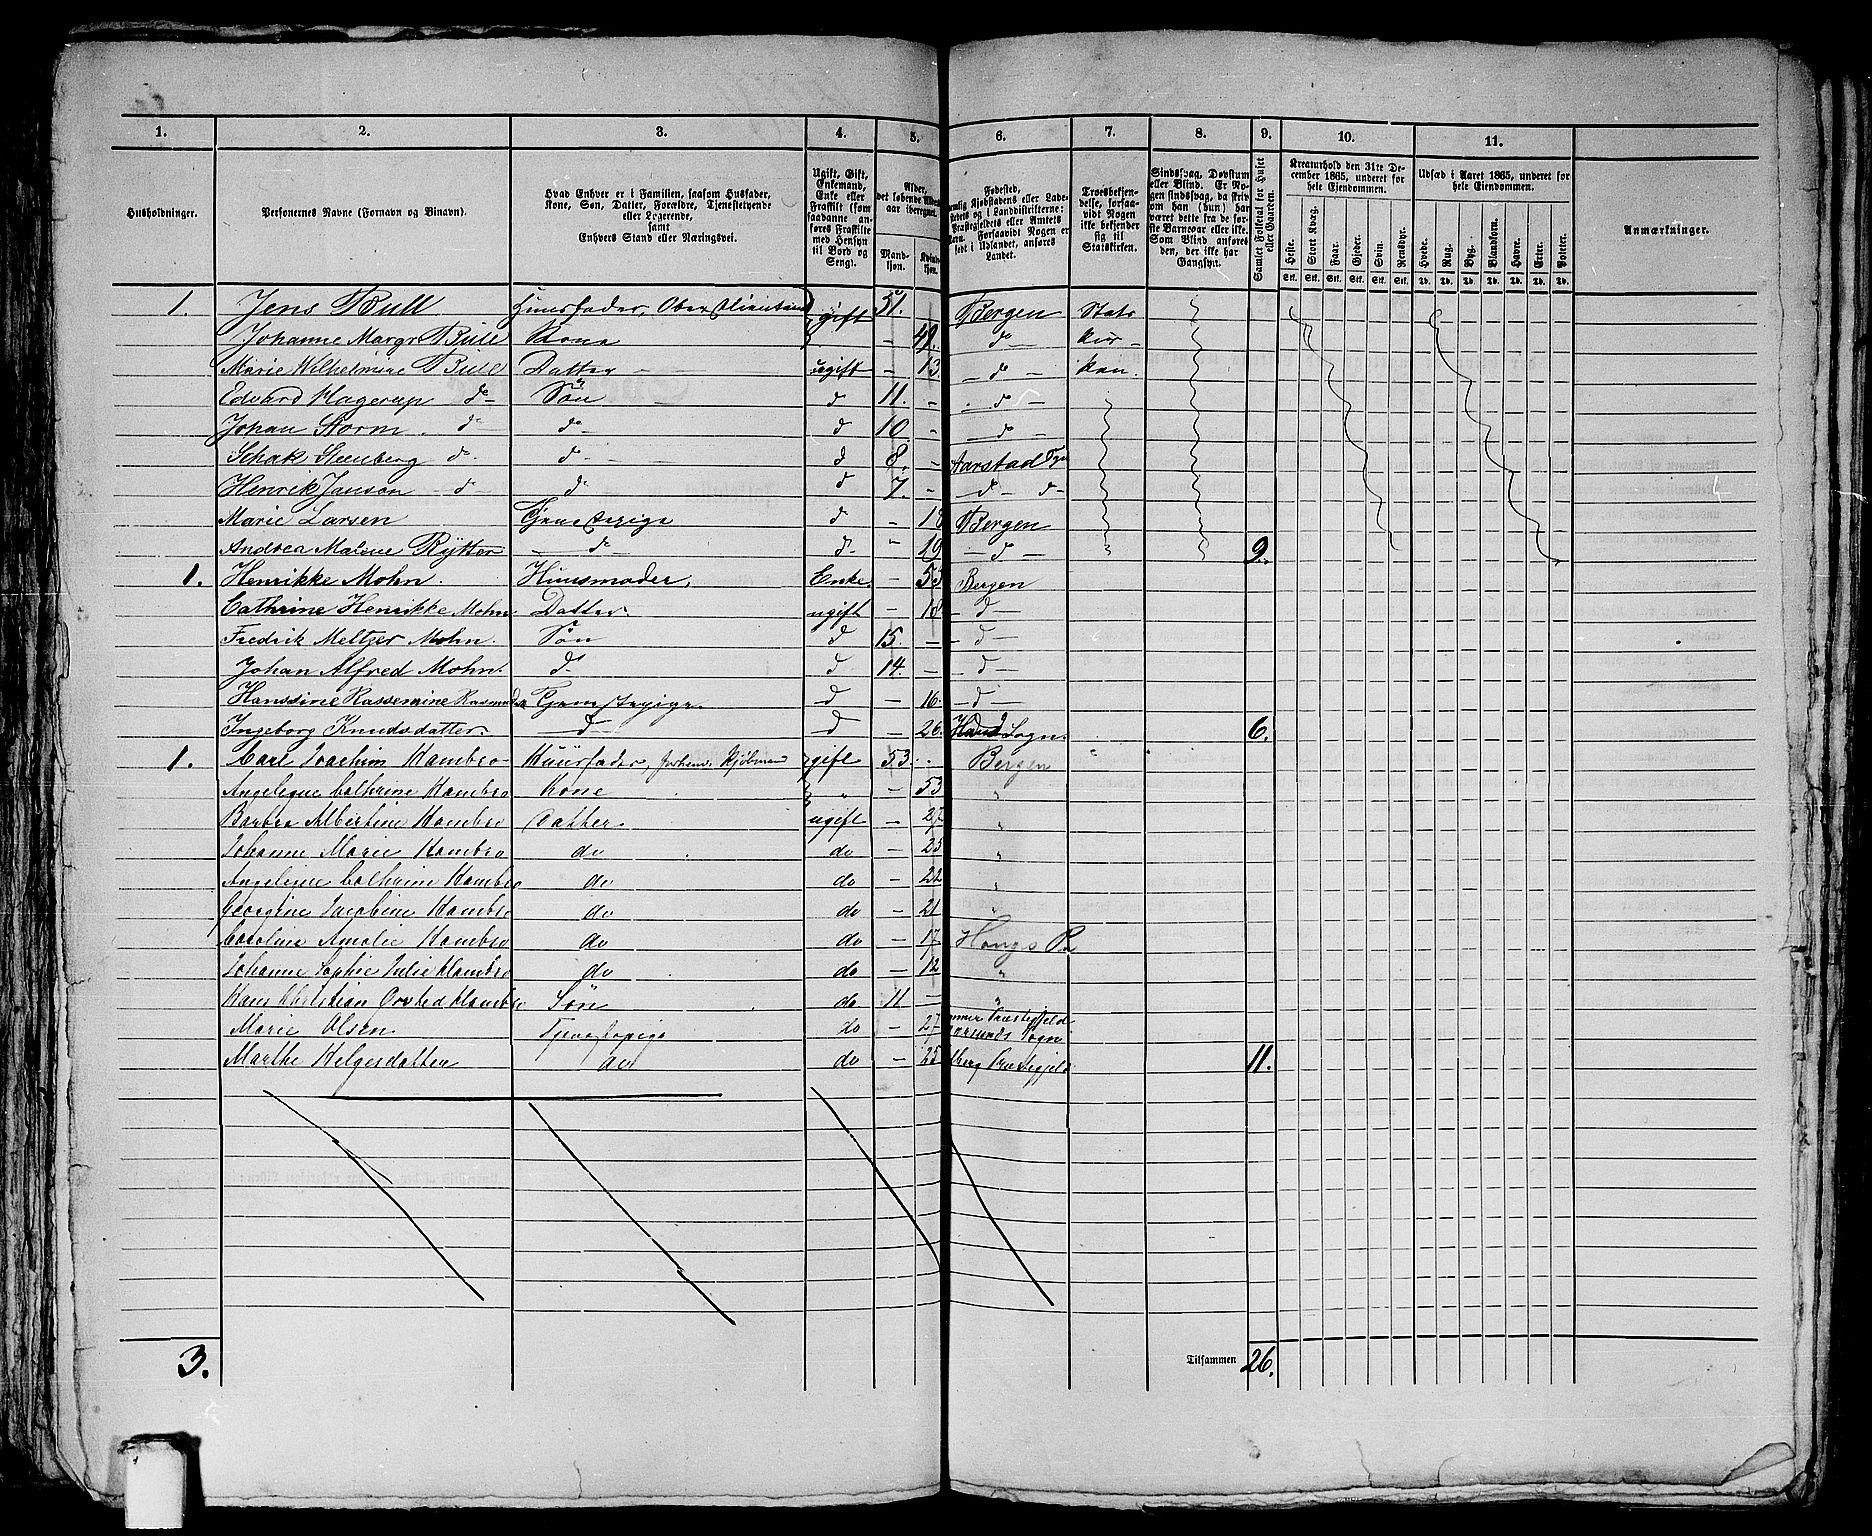 1. 2. 3. 4. 5. 6. 7. 8. 9. 10. 11.
Husholdninger.
Personernes Navne (Fornavn og Binavn).
Hvad Enhver er i Familien, saasom Husfader, Kone, Søn, Datter, Forældre, Tjenestetyende eller Logerende, samt Enhvers Stand eller Næringsvei.
Ugift, Gift, Enkemand, Enke eller Fraskilt (som saadanne anføres Fraskilte med Hensyn til Bord og Seng).
Alder, det løbende Alders aar iberegnet.
Mandkjøn. Kvindekjøn.
Fødested,
Troesbekjendelse, forsaavidt Nogen ikke bekjender sig til Statskirken.
Sindssvag, Døvstum eller Blind. Er Nogen sindssvag, da skriv om han (hun) har været dette fra de første Barneaar eller ikke. Som Blind anføres den, der ikke har Gangsyn.
Samlet Folketal for Huset eller Gaarden.
Kreaturhold den 31te December 1865, underet for hele Eiendommen.
Heste. Stort Kvæg. Faar. Gjeder. Svin. Rensdyr.
Udsæd i Aaret 1865, underet for hele Eiendommen.
Hvede. Rug. Byg. Blandkorn. Havre. Erter. Poteter.
Anmærkninger.
1. Jens Bull Huusfader, Oberstlieutenant gift 51. Bergen Stats
Johanne Margr Bull Kone - 49. - d - kir -
Marie Wilhelmine Bull Datter ugift - 13. - d - ken.
Edvard Hagerup d - Søn d 11. - - d -
Johan Storm d - d - d 10 - - d -
Schak Steenberg d - d - d 8. - Aarstad
Henrik Janson d d d 7. - - d - d -
Marie Larsen Tjenestepige d - 18 Bergen
Andrea Malene Rytter - d d - - 19 - d - 9.
1. Henrikke Mohn. Huusmoder, Enke. - 55 Bergen
Cathrine Henrikke Mohn Datter. ugift - 18 - d -
Fredrik Meltzer Mohn. Søn d 15. - - d -
Johan Alfred Mohn. d d 14. - - d -
Hanssine Rassemine Tjenestepige. d - 16. - d -
Ingeborg Knudsdatter. - d - d - 26. Sogn. 6.
1. Carl Joachim Hambro Huusfader, gift 53. Bergen
Angelique Cathrine Hambro Kone " - 53 "
Barbra Albertine Hambro Datter. ugift - 27 "
Johanne Marie Hambro do do - 25 "
Angelique Cathrine Hambro do do - 22 "
Georgine Jacobine Hambro do do - 21 "
Caroline Amalie Hambro do do - 17 Hougs
Johanne Sophie Julie Hambro do do - 12 "
Hans Christian Ørsted Hambro Søn do 11 - "
Marie Olsen Tjenestepige do - 27 Præstegjeld Sogn
Marthe Helgesdatter do do - 25 Præstegjeld 11.
3. Tilsammen 26.